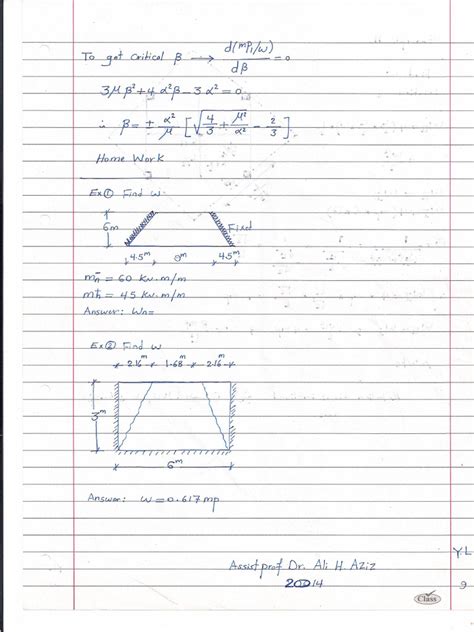 To get Critical β → d(mp/w)/dβ = 0
3μβ² + 4α²β - 3α² = 0
∴ β = ± α²/μ [√(4/3 + μ²/α²) - 2/3]
Home Work
Ex① Find w
6m
Fixed
4.5m 0m 4.5m
mn̄ = 60 kN.m/m
mn+ = 45 kN.m/m
Answer: Wn=
Ex② Find w
2.16m 1.68m 2.16m
3m
6m
Answer: w = 0.617 mp
Assist prof Dr. Ali H. Aziz
2014
YL
9
Class